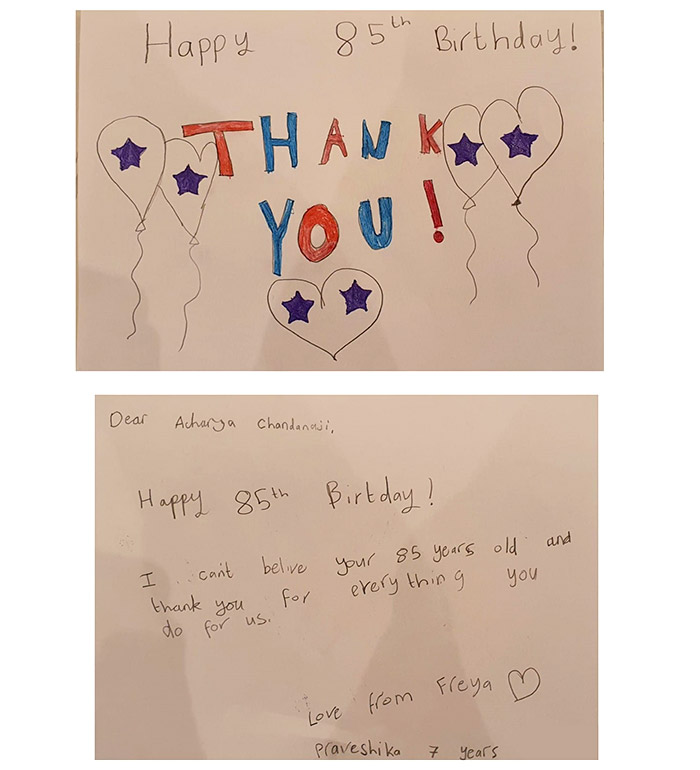 Happy 85th Birthday!
THANK
YOU!
Dear Acharya Chandanaji,
Happy 85th Birtday!
I can't belive your 85 years old and
thank you for everything you
do for us.
Love from Freya
Praveshika 7 years